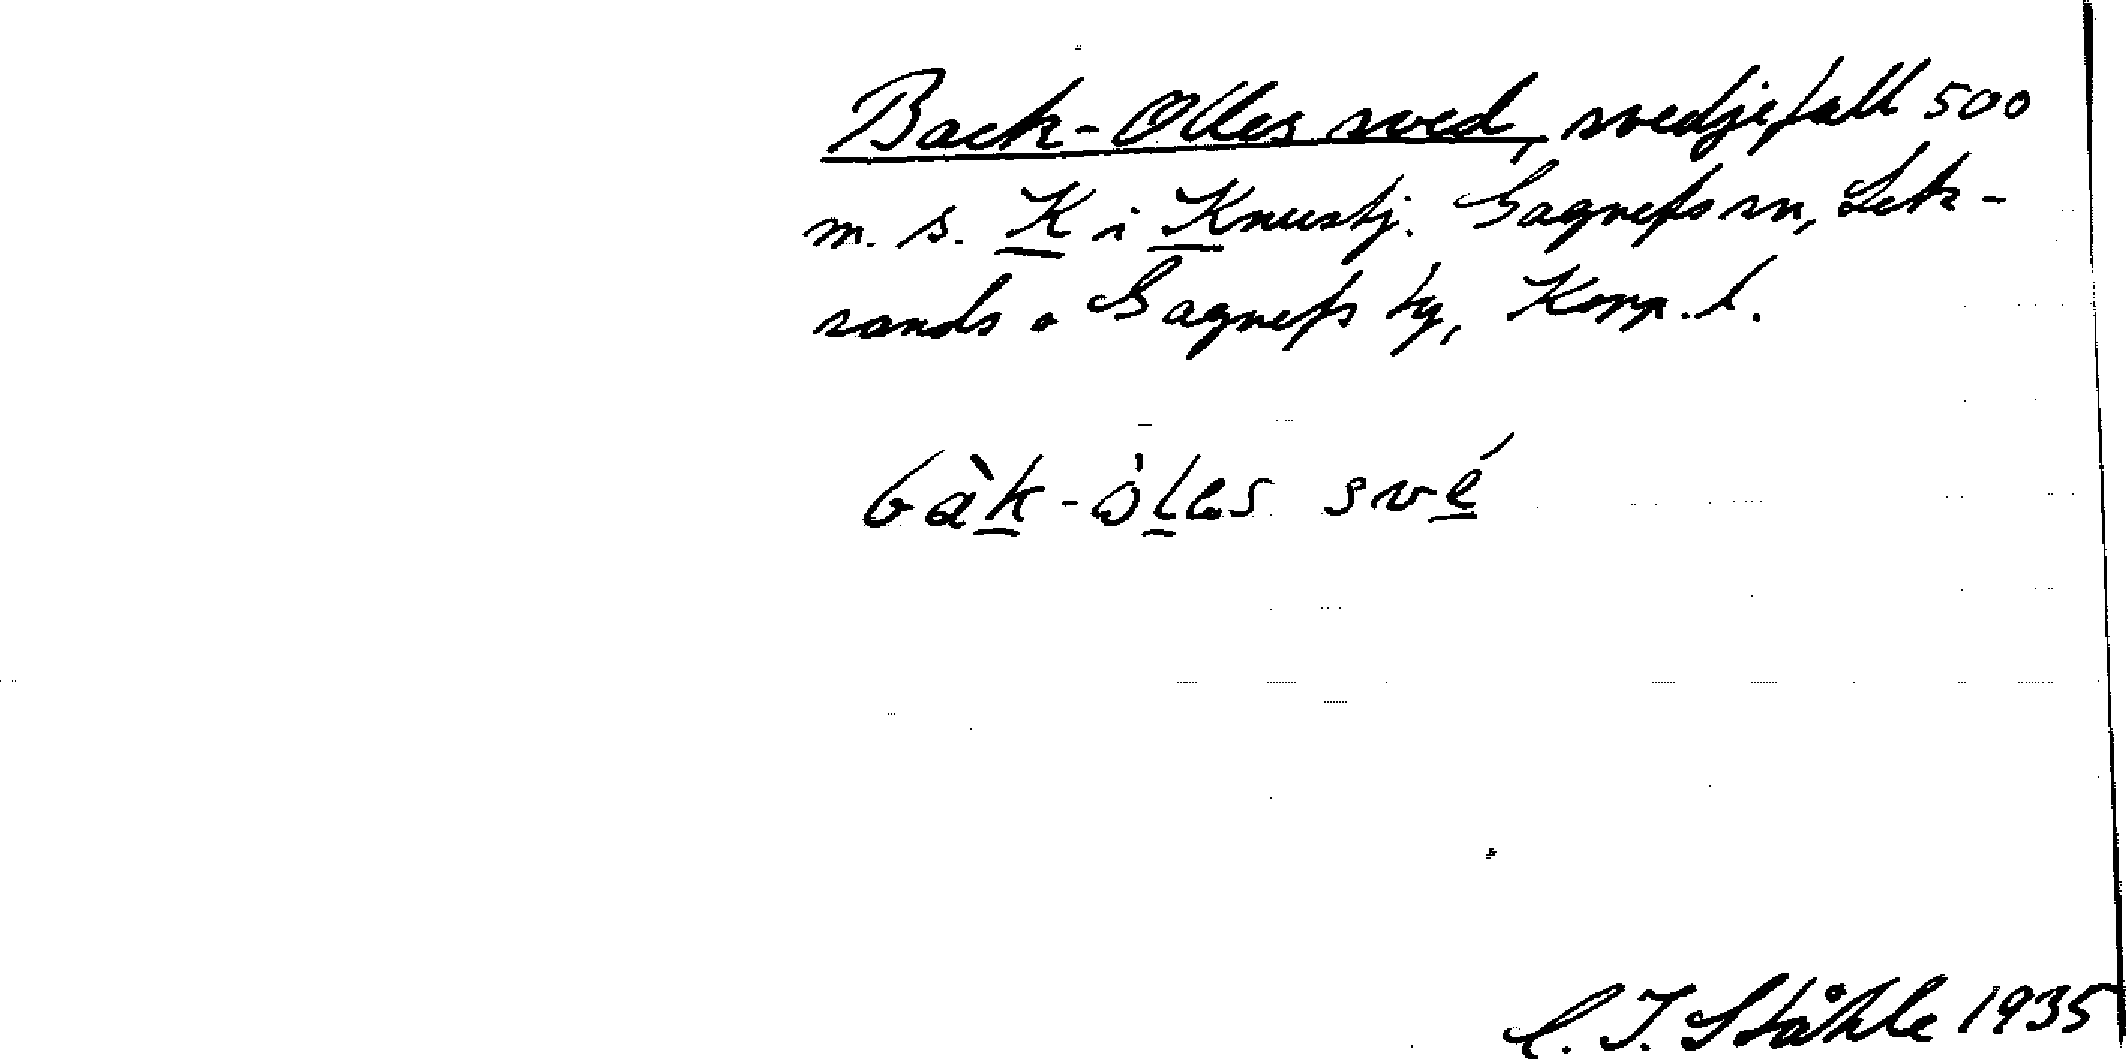 Back-Olles sved, svedjefall 500
m. s. K i Knustj. Gagnefs sn, Lek-
sands o Gagnefs tg, Kopp. l.
bàk-òles své
C. I. Ståhle 1935